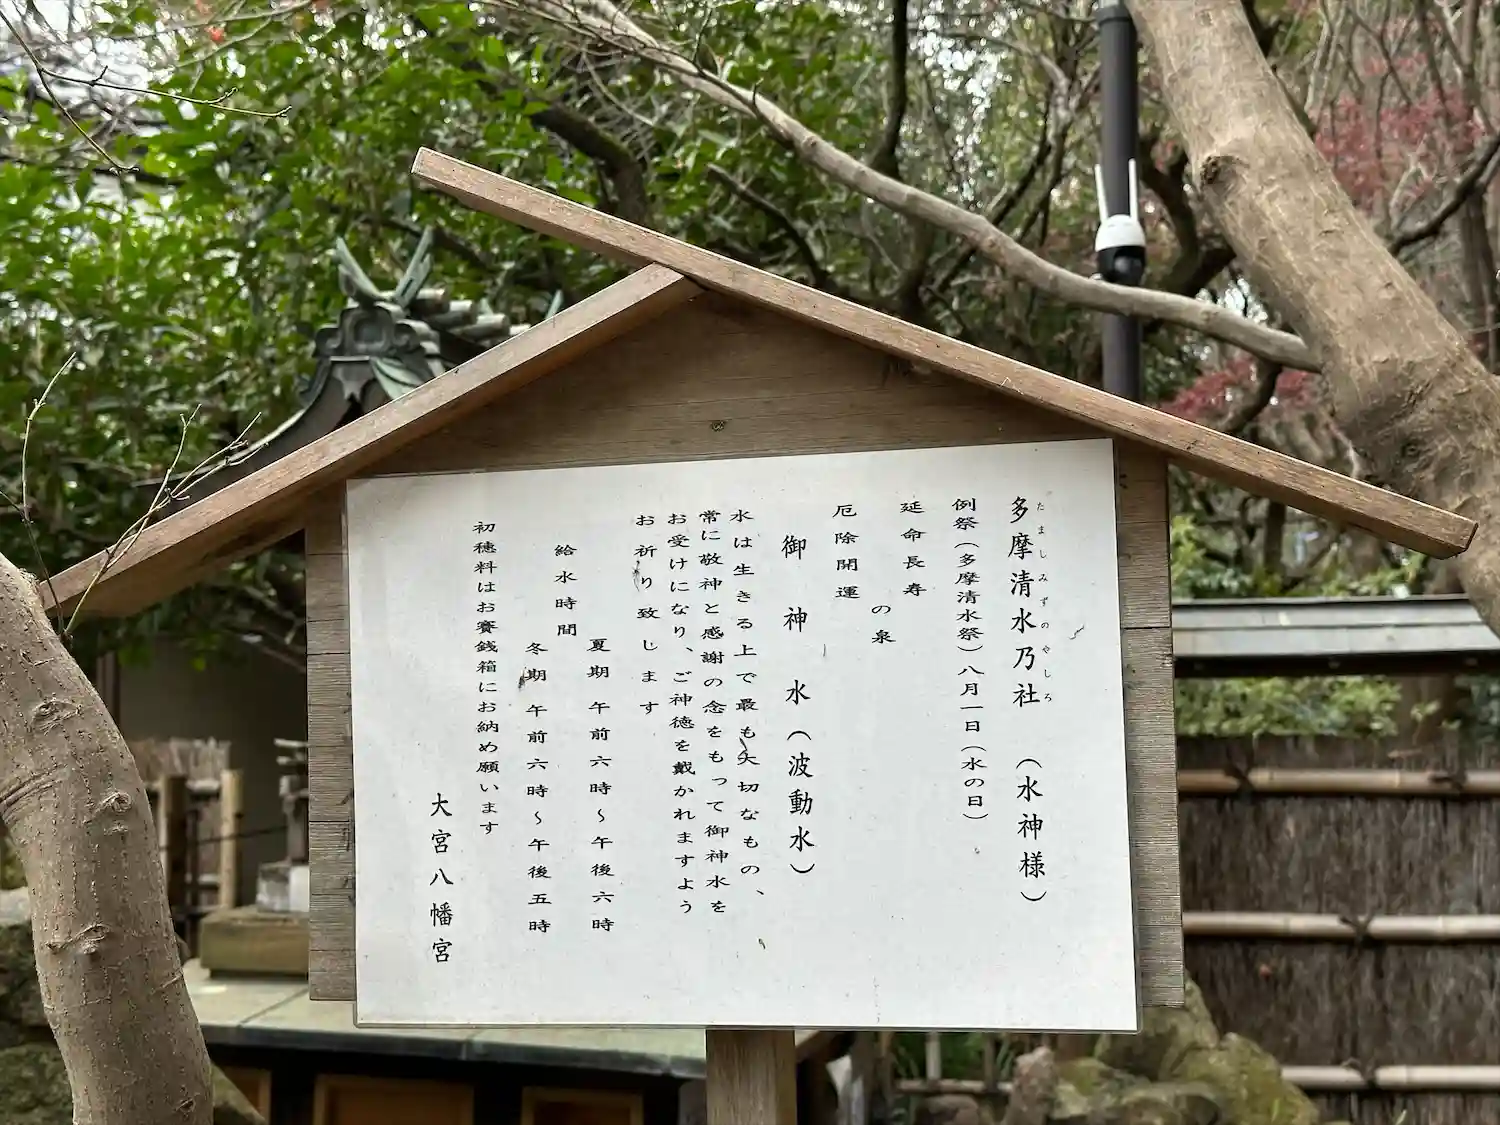 多摩清水乃社 (水神様)
たましみずのやしろ
例祭(多摩清水祭)八月一日(水の日)
延命長寿
の泉
厄除開運
御神水(波動水)
水は生きる上で最も大切なもの、
常に敬神と感謝の念をもって御神水を
お受けになり、ご神徳を戴かれますよう
お祈り致します
給水時間
夏期 午前六時~午後六時
冬期 午前六時~午後五時
初穂料はお賽銭箱にお納め願います
大宮八幡宮